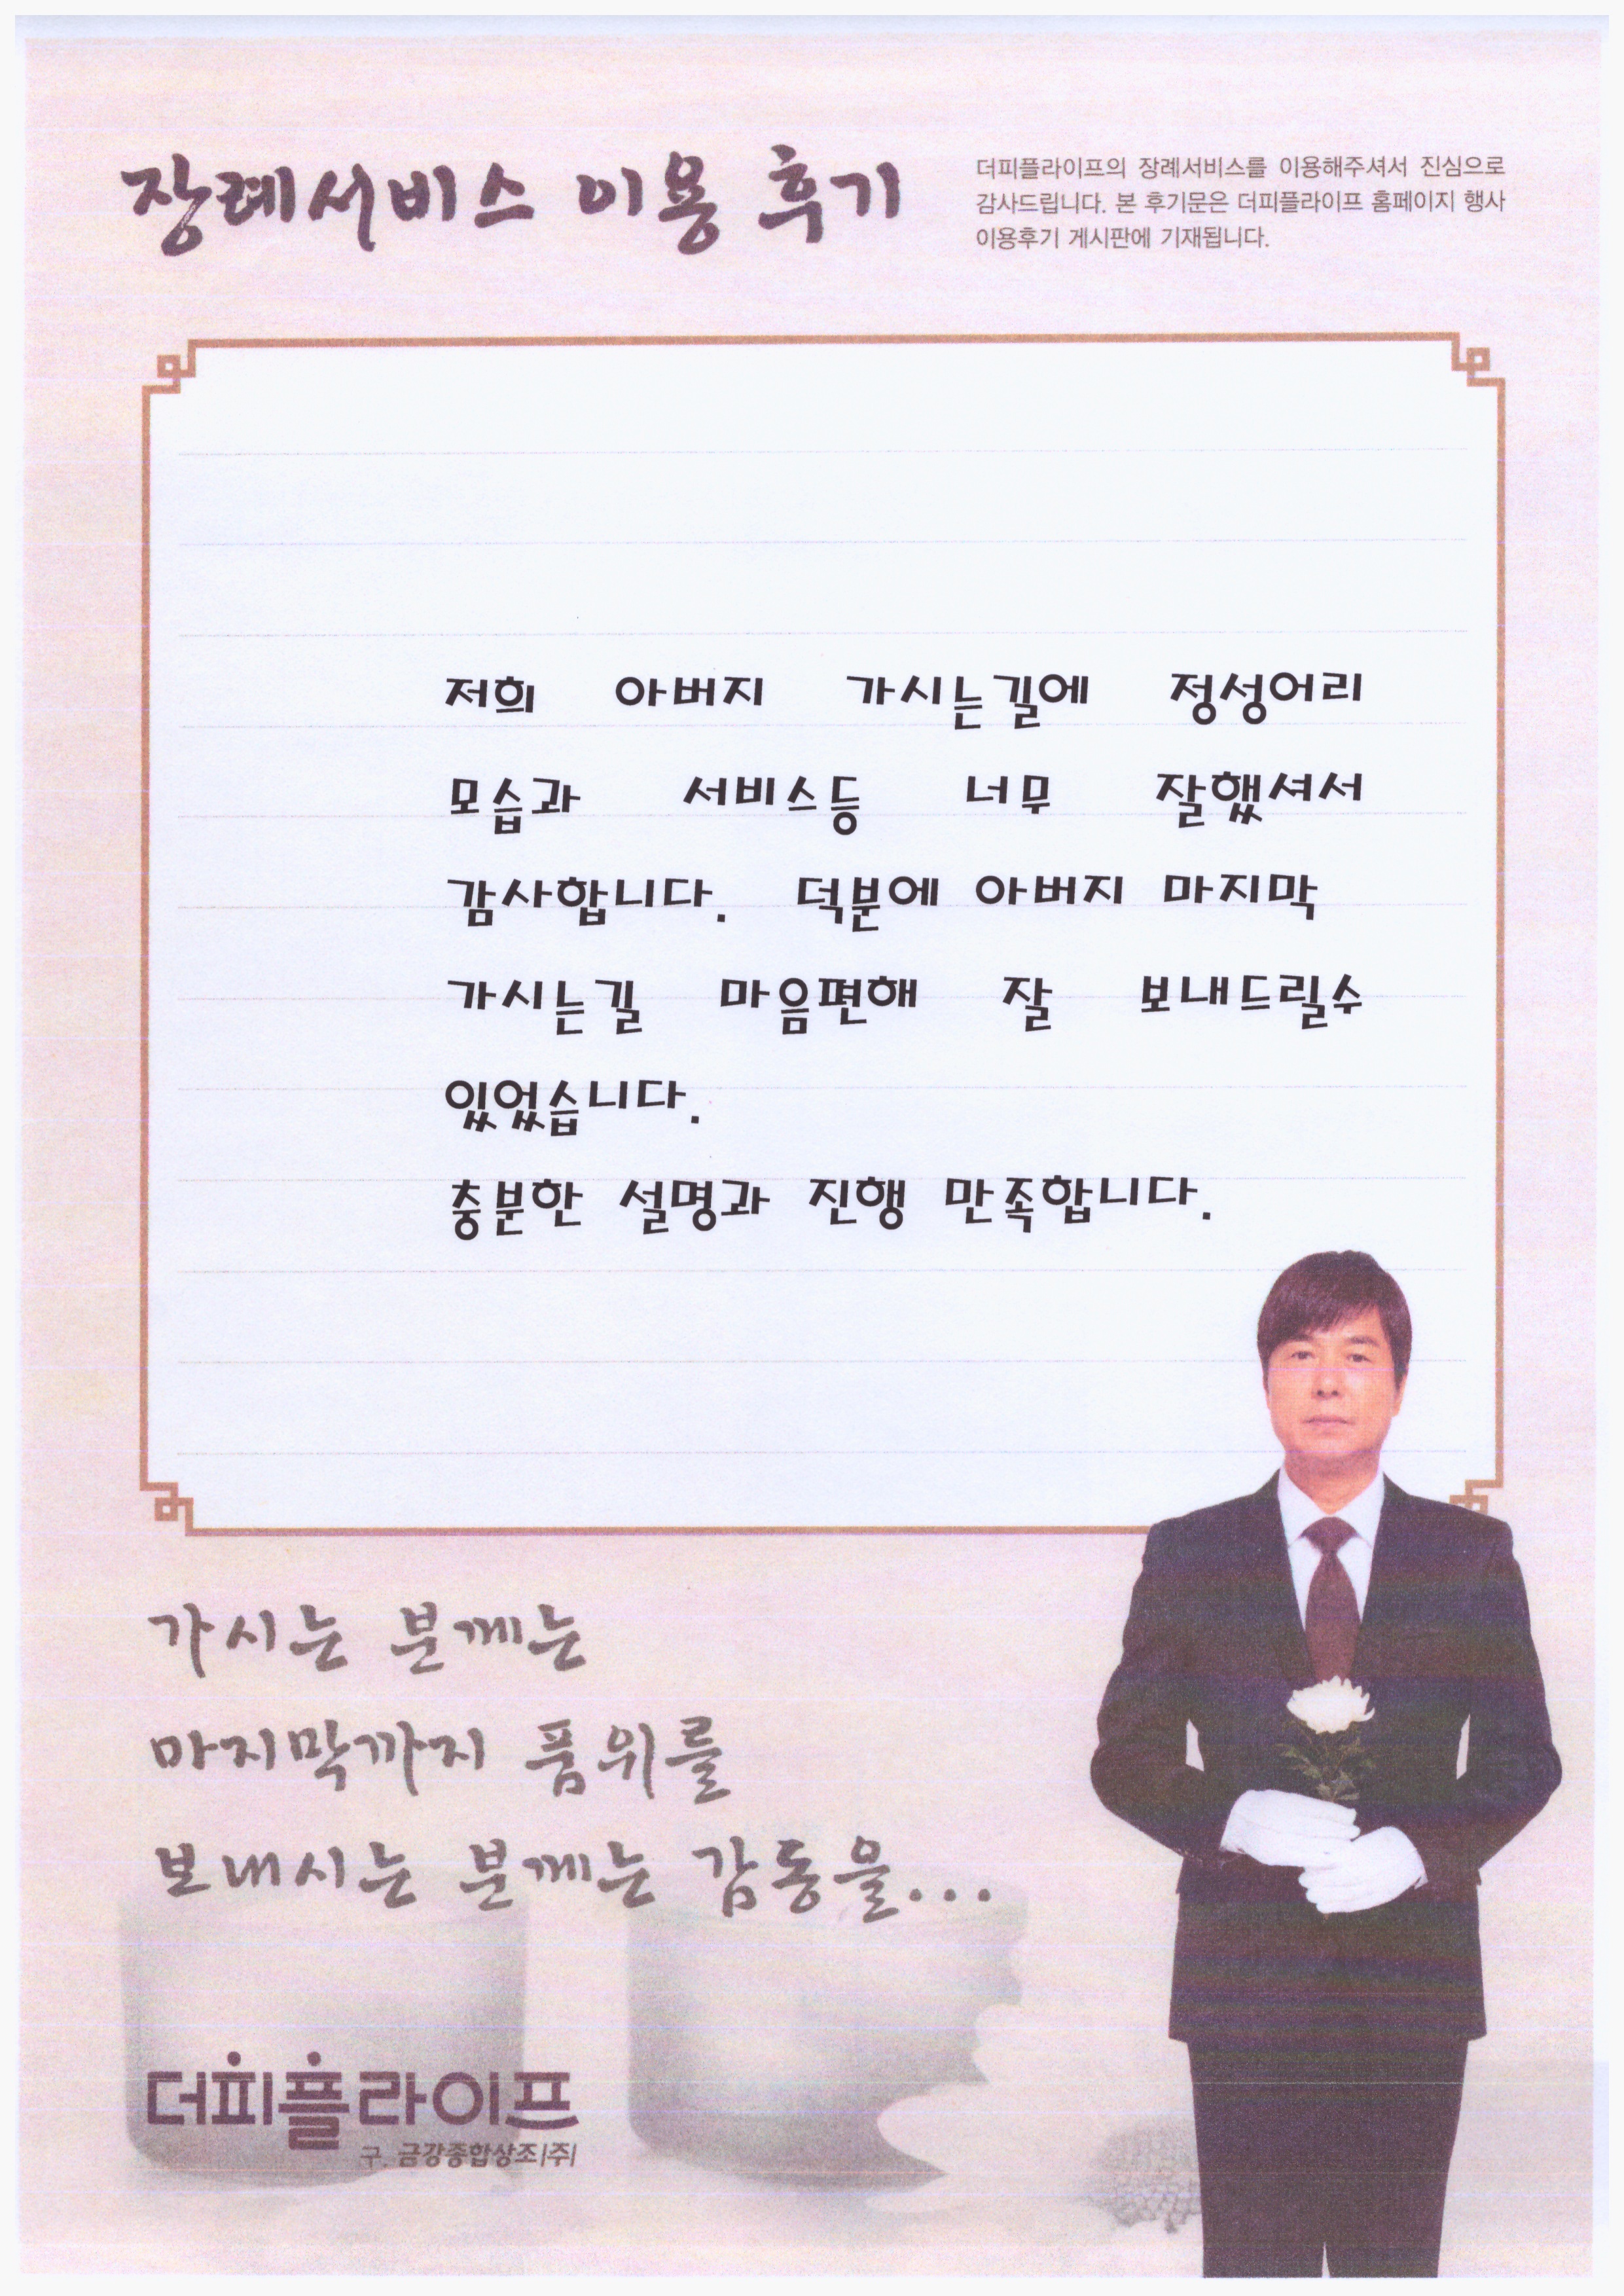 장례서비스 이용 후기
더피플라이프의 장례서비스를 이용해주셔서 진심으로
감사드립니다. 본 후기문은 더피플라이프 홈페이지 행사
이용후기 게시판에 기재됩니다.
저희 아버지 가시는길에 정성어리
모습과 서비스등 너무 잘했셔서
감사합니다. 덕분에 아버지 마지막
가시는길 마음편해 잘 보내드릴수
있었습니다.
충분한 설명과 진행 만족합니다.
가시는 분께는
마지막까지 품위를
보내시는 분께는 감동을...
더피플라이프
구. 금강종합상조|주|